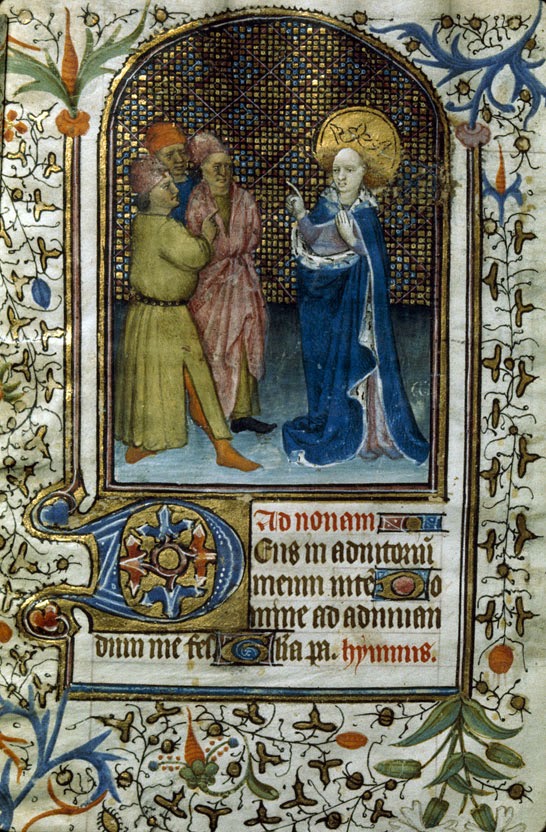 Ad nonam
DEus in adiutoriū
meum inte Do
mine ad adiuuan
dum me fes Gl̄ia pa. hymnus.